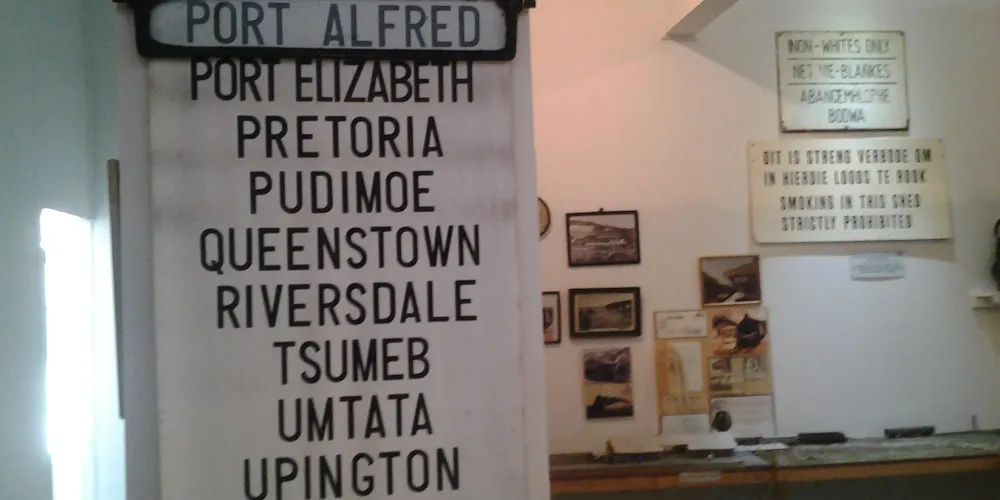 PORT ALFRED
PORT ELIZABETH
PRETORIA
PUDIMOE
QUEENSTOWN
RIVERSDALE
TSUMEB
UMTATA
UPINGTON
NON-WHITES ONLY
NET NIE-BLANKES
ABANGEMHLOPHE
BODWA
DIT IS STRENG VERBODE OM
IN HIERDIE LOODS TE ROOK
SMOKING IN THIS SHED
STRICTLY PROHIBITED